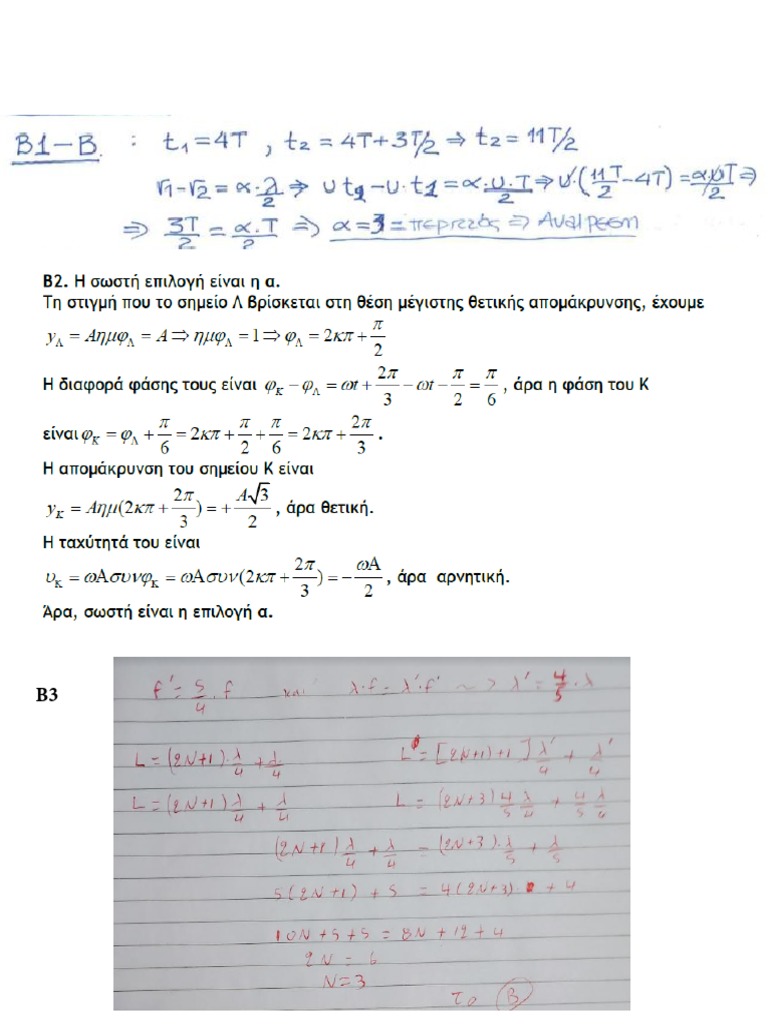 B1-B. : t₁=4T , t₂ = 4T+3T/2 ⇒ t₂ = 11T/2
r1-r2 = α·λ/2 ⇒ υt₂-υ·t₁ = α·υ·T/2 ⇒ υ·(11T/2-4T) = α·υT/2 ⇒
⇒ 3T/2 = α·T/2 ⇒ α=3=περιττός ⇒ Αναίρεση
B2. Η σωστή επιλογή είναι η α.
Τη στιγμή που το σημείο Λ βρίσκεται στη θέση μέγιστης θετικής απομάκρυνσης, έχουμε
y_Λ = Αημφ_Λ = A ⇒ ημφ_Λ = 1 ⇒ φ_Λ = 2κπ + π/2
Η διαφορά φάσης τους είναι φ_Κ − φ_Λ = ωt + 2π/3 − ωt − π/2 = π/6 , άρα η φάση του Κ
είναι φ_Κ = φ_Λ + π/6 = 2κπ + π/2 + π/6 = 2κπ + 2π/3 .
Η απομάκρυνση του σημείου Κ είναι
y_K = Αημ(2κπ + 2π/3) = + A√3/2 , άρα θετική.
Η ταχύτητά του είναι
υ_Κ = ωΑσυνφ_Κ = ωΑσυν(2κπ + 2π/3) = − ωΑ/2 , άρα αρνητική.
Άρα, σωστή είναι η επιλογή α.
B3
f' = 5/4 · f και λ·f = λ'·f' ~> λ' = 4/5 · λ
L = (2N+1)·λ/4 + λ/4 L = [2(N+1)+1] λ'/4 + λ'/4
L = (2N+1) λ/4 + λ/4 L = (2N+3) 4/5 λ/4 + 4/5 λ/4
(2N+1) λ/4 + λ/4 = (2N+3)·λ/5 + λ/5
5(2N+1) + 5 = 4(2N+3) · + 4
10N+5+5 = 8N+12+4
2N = 6
N=3
Το B